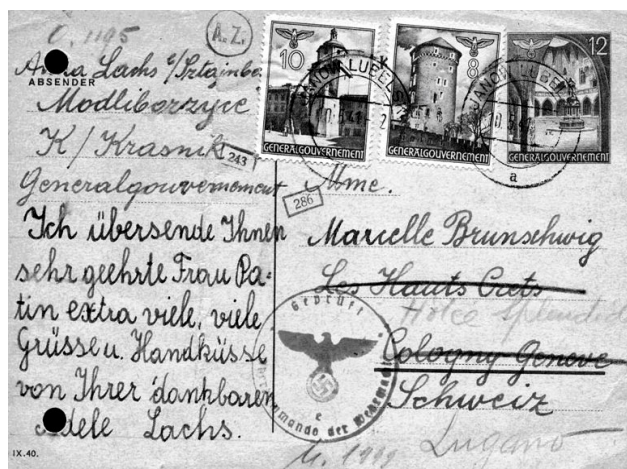 O. 1195
A.Z.
Anna Lachs c/Sztajnbe
ABSENDER
Modliborzyce
K/Krasnik
243
Generalgouvernement
286
Ich übersende Ihnen
sehr geehrte Frau Pa-
tin extra viele, viele
Grüsse u. Handküsse
von Ihrer dankbaren
Adele Lachs.
IX.40.
10
GENERALGOUVERNEMENT
8
GENERALGOUVERNEMENT
12
GENERALGOUVERNEMENT
JANOW LUBELSKI
JANOW LUBELSKI
a
Mme.
Marcelle Brunschwig
Les Hauts Crêts
Hôtel Splendid
Cologny Genève
Schweiz
Lugano
Geprüft
Oberkommando der Wehrmacht
e